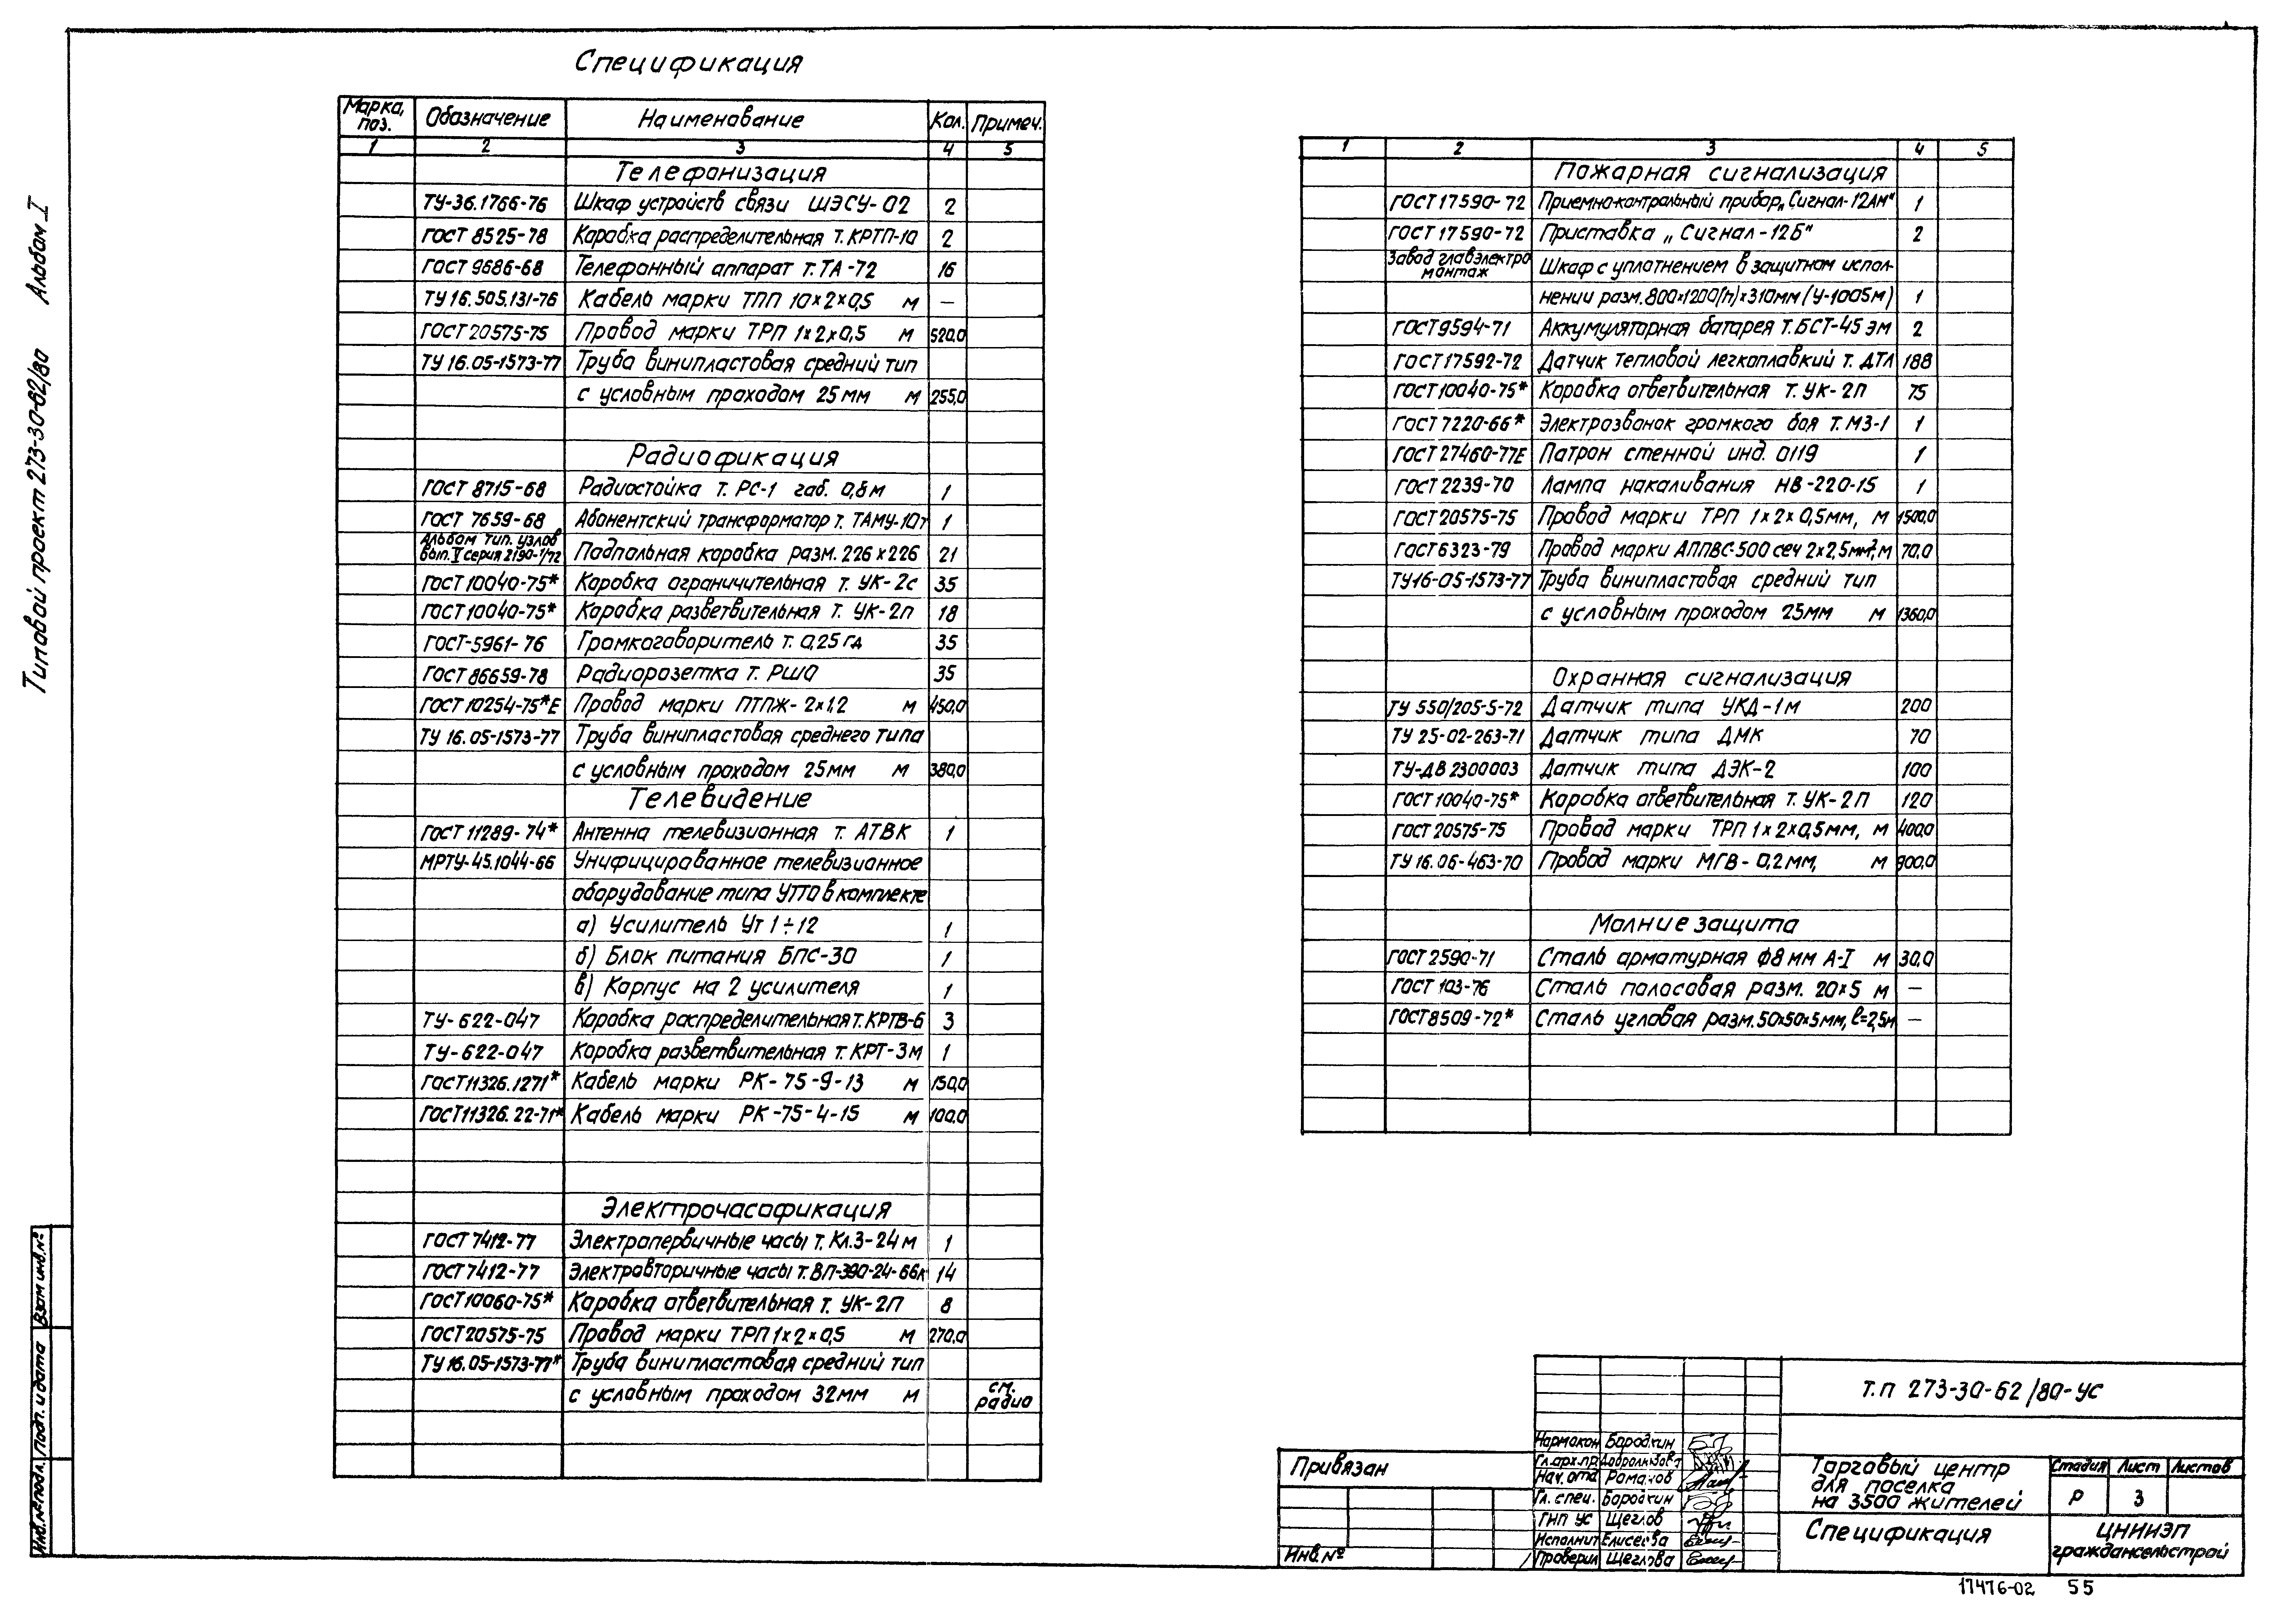 Типовой проект 273-30-62/80 Альбом I
Спецификация
Марка, поз. Обозначение Наименование Кол. Примеч.
1 2 3 4 5
Телефонизация
ТУ-36.1766-76 Шкаф устройств связи ШЭСУ-02 2
ГОСТ 8525-78 Коробка распределительная т. КРТП-10 2
ГОСТ 9686-68 Телефонный аппарат т. ТА-72 16
ТУ 16.505.131-76 Кабель марки ТПП 10×2×0,5 м —
ГОСТ 20575-75 Провод марки ТРП 1×2×0,5 м 520,0
ТУ 16.05-1573-77 Труба винипластовая средний тип
с условным проходом 25мм м 255,0
Радиофикация
ГОСТ 8715-68 Радиостойка т. РС-1 габ. 0,8м 1
ГОСТ 7659-68 Абонентский трансформатор т. ТАМУ-10т 1
Альбом тип. узлов
вып. V серия 2190-1/72 Подпольная коробка разм. 226×226 21
ГОСТ 10040-75* Коробка ограничительная т. УК-2с 35
ГОСТ 10040-75* Коробка разветвительная т. УК-2п 18
ГОСТ-5961-76 Громкоговоритель т. 0,25гд 35
ГОСТ 86659-78 Радиорозетка т. РШО 35
ГОСТ 10254-75*Е Провод марки ПТПЖ-2×1,2 м 450,0
ТУ 16.05-1573-77 Труба винипластовая среднего типа
с условным проходом 25мм м 380,0
Телевидение
ГОСТ 11289-74* Антенна телевизионная т. АТВК 1
МРТУ-45.1044-66 Унифицированное телевизионное
оборудование типа УТПО в комплекте
а) Усилитель Ут 1÷12 1
б) Блок питания БПС-30 1
в) Корпус на 2 усилителя 1
ТУ-622-047 Коробка распределительная т. КРТВ-6 3
ТУ-622-047 Коробка разветвительная т. КРТ-3м 1
ГОСТ 11326.1271* Кабель марки РК-75-9-13 м 150,0
ГОСТ 11326.22-71* Кабель марки РК-75-4-15 м 100,0
Электрочасофикация
ГОСТ 7412-77 Электропервичные часы т. Кл.3-24м 1
ГОСТ 7412-77 Электровторичные часы т. ВП-390-24-66к 14
ГОСТ 10060-75* Коробка ответвительная т. УК-2П 8
ГОСТ 20575-75 Провод марки ТРП 1×2×0,5 м 270,0
ТУ 16.05-1573-77* Труба винипластовая средний тип
с условным проходом 32мм м см. радио
1 2 3 4 5
Пожарная сигнализация
ГОСТ 17590-72 Приемно-контрольный прибор „Сигнал-12АМ" 1
ГОСТ 17590-72 Приставка „Сигнал-12Б" 2
Завод главэлектро
монтаж Шкаф с уплотнением в защитном испол-
нении разм. 800×1200(h)×310мм (У-1005м) 1
ГОСТ 9594-71 Аккумуляторная батарея т. БСТ-45 эм 2
ГОСТ 17592-72 Датчик тепловой легкоплавкий т. ДТЛ 188
ГОСТ 10040-75* Коробка ответвительная т. УК-2п 75
ГОСТ 7220-66* Электрозвонок громкого боя т. МЗ-1 1
ГОСТ 27460-77Е Патрон стенной инд. 0119 1
ГОСТ 2239-70 Лампа накаливания НВ-220-15 1
ГОСТ 20575-75 Провод марки ТРП 1×2×0,5мм, м 1500,0
ГОСТ 6323-79 Провод марки АППВС-500 сеч 2×2,5мм², м 70,0
ТУ16-05-1573-77 Труба винипластовая средний тип
с условным проходом 25мм м 1360,0
Охранная сигнализация
ТУ 550/205-5-72 Датчик типа УКД-1м 200
ТУ 25-02-263-71 Датчик типа ДМК 70
ТУ-ДВ 2300003 Датчик типа ДЭК-2 100
ГОСТ 10040-75* Коробка ответвительная т. УК-2П 120
ГОСТ 20575-75 Провод марки ТРП 1×2×0,5мм, м 400,0
ТУ 16.06-463-70 Провод марки МГВ-0,2мм, м 900,0
Молниезащита
ГОСТ 2590-71 Сталь арматурная ф8мм А-I м 30,0
ГОСТ 103-76 Сталь полосовая разм. 20×5 м —
ГОСТ 8509-72* Сталь угловая разм. 50×50×5мм, ℓ=2,5м —
Взам инв.№
Подп. и дата
Инв.№ подл.
Привязан
Инв.№
Нормокон Бородкин
Гл.арх.пр
Нач. отд Романов
Гл. спец. Бородкин
ГИП УС Щеглов
Исполнит Елисеева
Проверил Щеглова
Т.п 273-30-62/80-УС
Торговый центр
для поселка
на 3500 жителей
Стадия Лист Листов
Р 3
Спецификация
ЦНИИЭП
граждансельстрой
17476-02 55